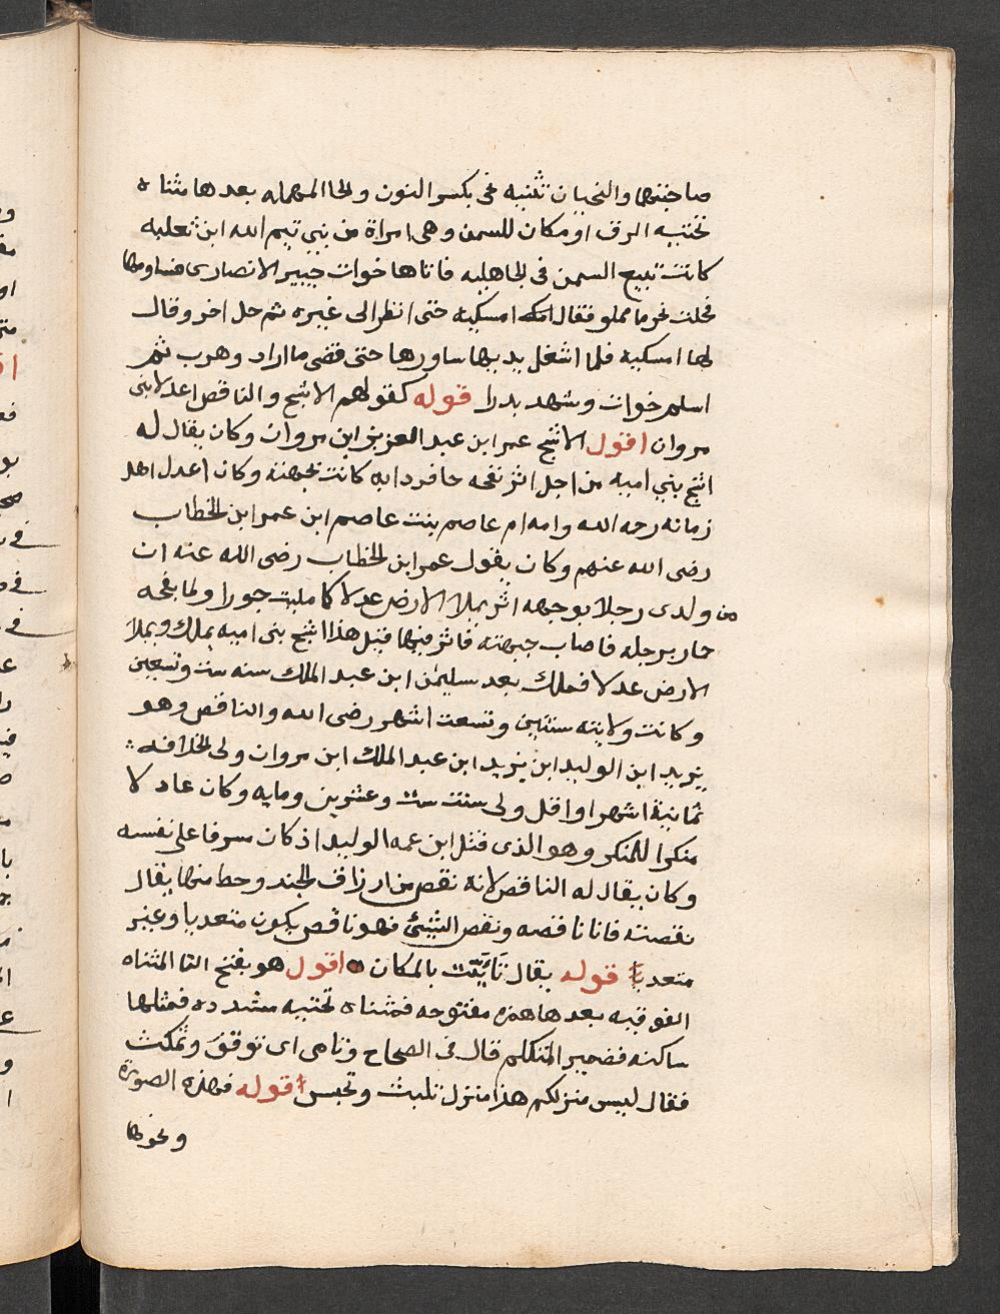 صاحبتها والنحيان تثنيه نحى بكسر النون والحا المهمله بعدها مثناه
تحتيه الزق او مكان للسمن وهى امراة من بنى تيم الله ابن ثعلبه
كانت تبيع السمن فى الجاهليه فاتاها خوات جبير الانصارى فساومها
فحلت نحو ما مملو فقال امسكيه حتى انظر الى غيره ثم حل اخر وقال
لها امسكيه فلما اشغل يديها ساورها حتى قضى ما اراد وهرب ثم
اسلم خوات وشهد بدرا قوله كقولهم الاشج والناقص اعدلا بنى
مروان اقول الاشج عمر ابن عبد العزيز ابن مروان وكان يقال له
اشج بنى اميه من اجل اثر نفحه حافر دابه كانت بجبهته وكان اعدل اهل
زمانه رحه الله وامه ام عاصم بنت عاصم ابن عمر ابن الخطاب
رضى الله عنهم وكان يقول عمر ابن الخطاب رضى الله عنه ان
من ولدى رجلا بوجهه اثر يملا الارض عدلا كما مليت جورا ولما نفحه
حمار برجله فاصاب جبهته فاثر فيها قيل هذا اشج بنى اميه يملك ويملا
الارض عدلا فملك بعد سليمن ابن عبد الملك سنه ست وتسعين
وكانت ولايته سنتين وتسعت اشهر رضى الله والناقص وهو
يزيد ابن الوليد ابن يزيد ابن عبد الملك ابن مروان ولى الخلافه
ثمانية اشهر او اقل ولى سنت ست وعشرين ومايه وكان عادلا
منكرا للمنكر وهو الذى قتل ابن عمه الوليد اذ كان مسرفا على نفسه
وكان يقال له الناقص لانه نقص من ارزاق الجند وحط منها يقال
نقصته فانا ناقصه ونقص الشيئ فهو ناقص يكون متعديا وغير
متعد قوله يقال تَأيَّيْت بالمكان اقول هو بفتح التا المثناه
الفوقيه بعدها همزه مفتوحه فمثناه تحتيه مشدده فمثلها
ساكنه فضمير المتكلم قال فى الصحاح وتامى اى توقف وتمكث
فقال ليس منزلكم هذا منزل تلبث وتحبس قوله فهذه الصورة
ونحوها